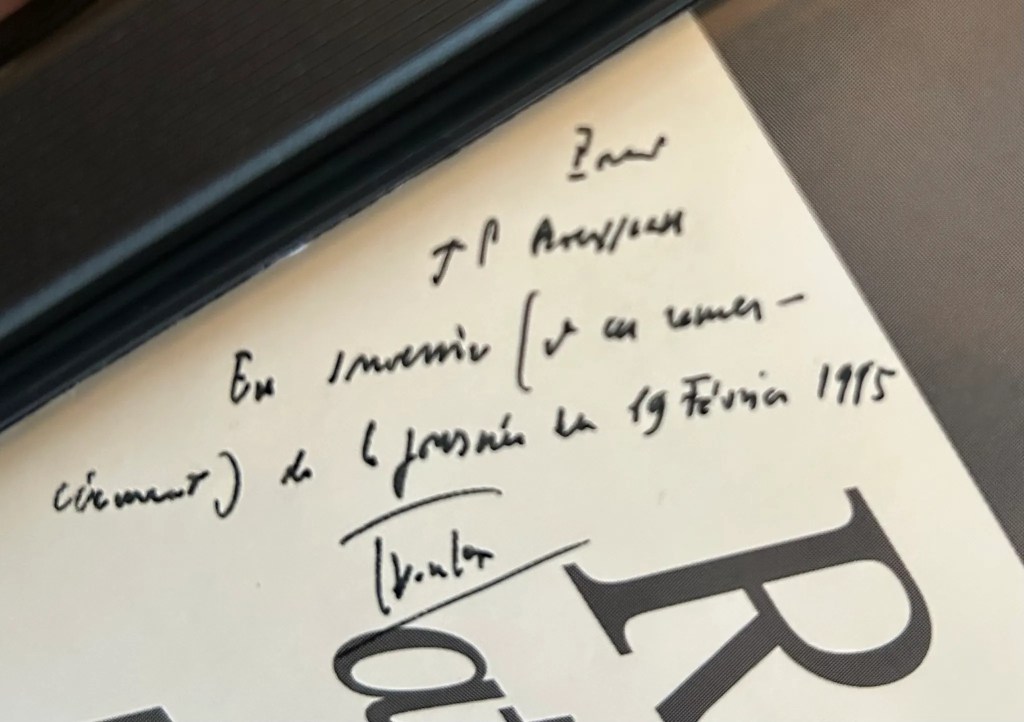 Pour
J P
En souvenir (et en remer-
ciement) de la journée du 19 Février 1995
R
a